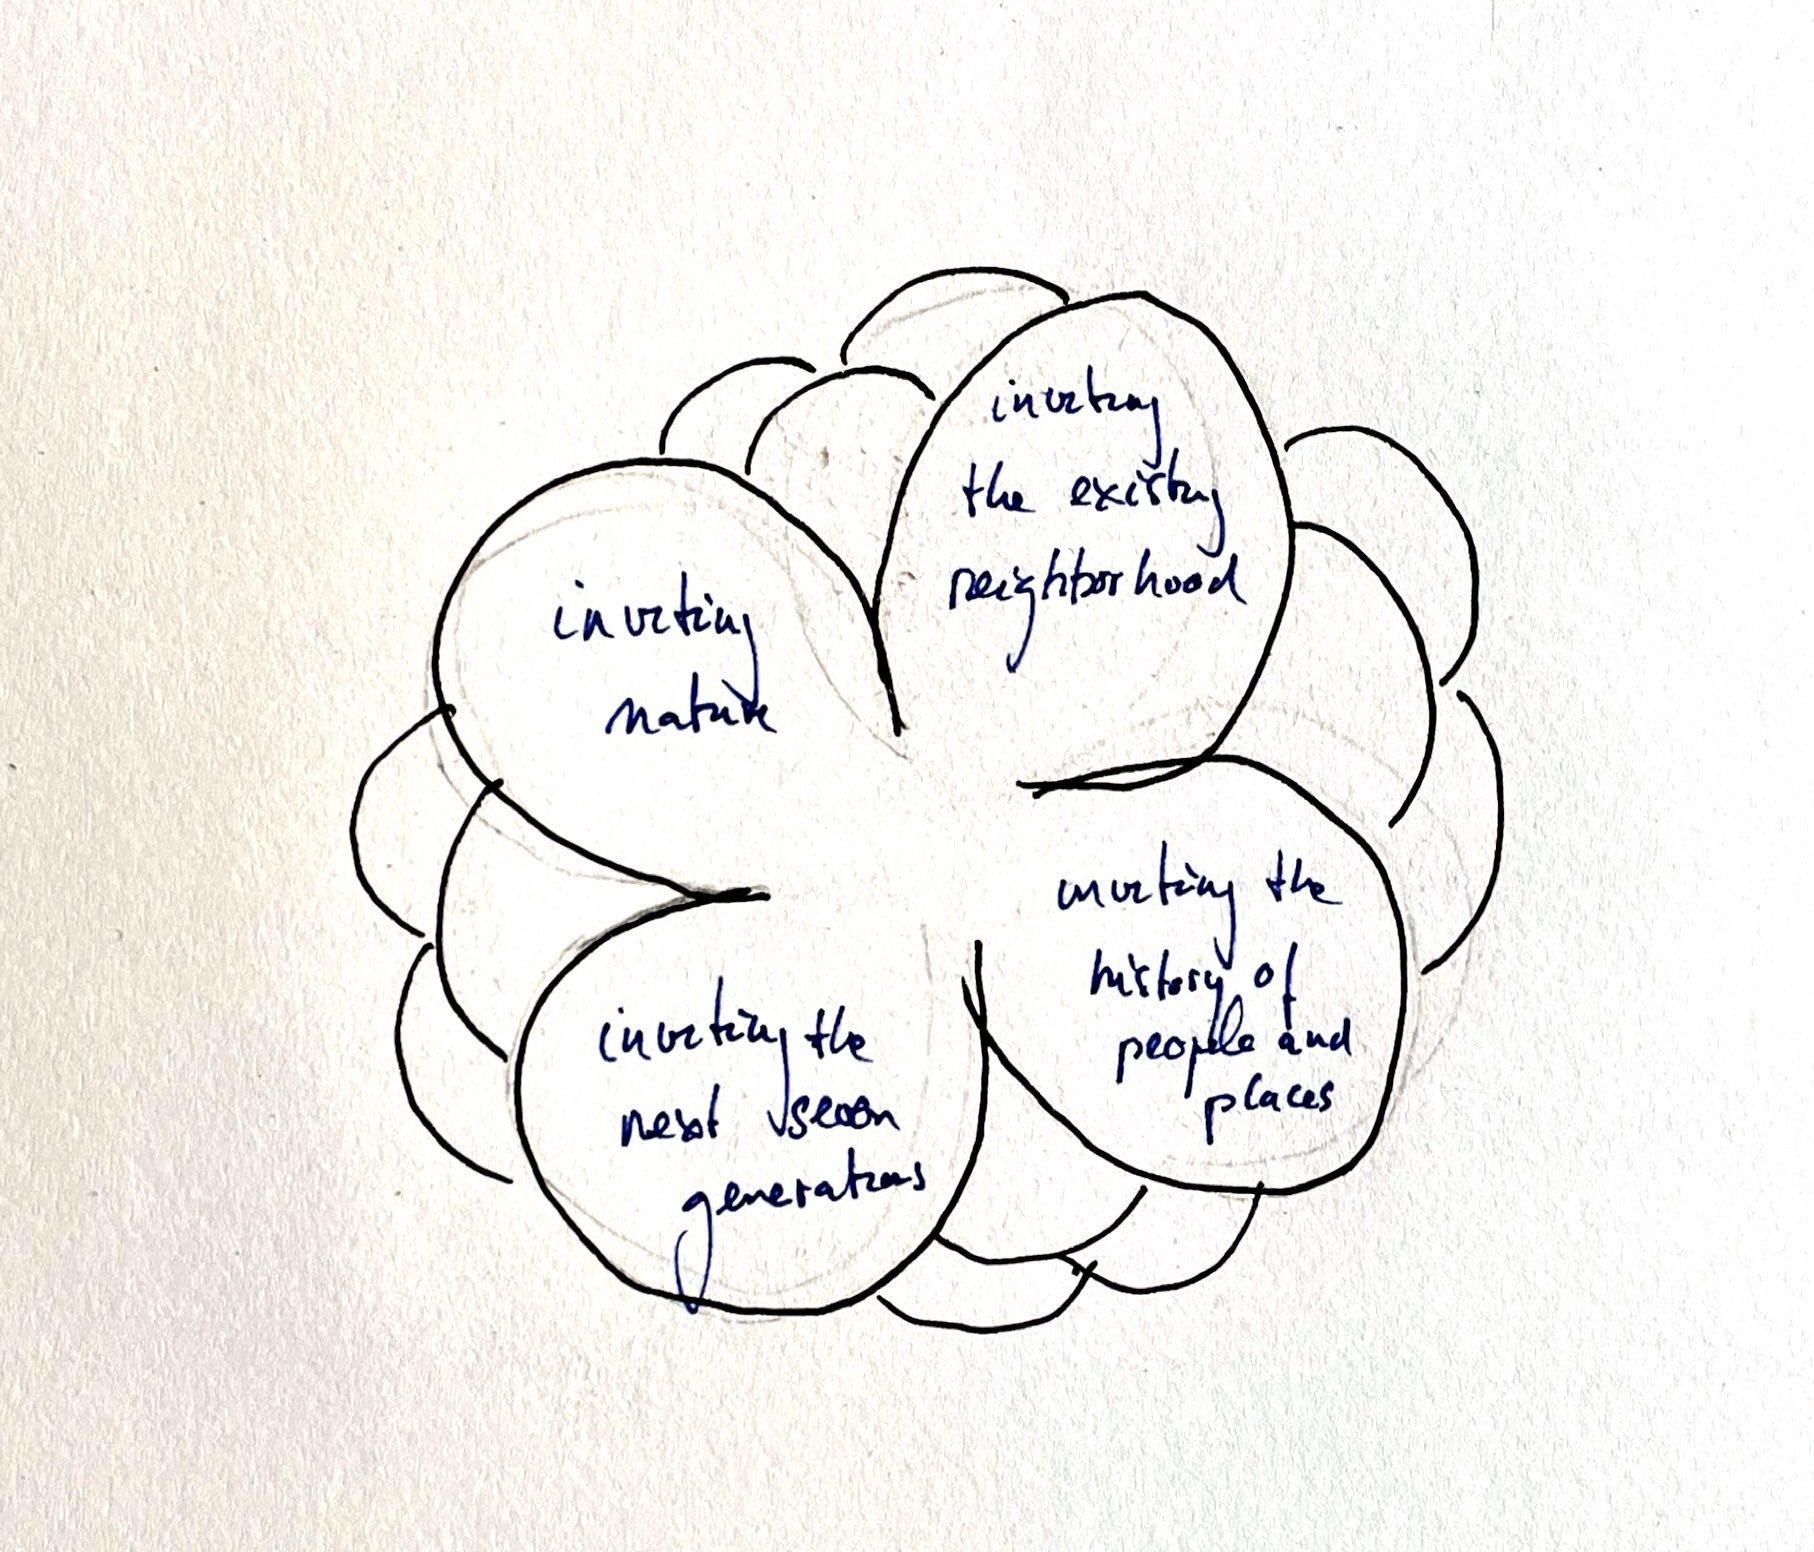 inviting
the existing
neighborhood
inviting
nature
inviting the
history of
people and
places
inviting the
next seven
generations